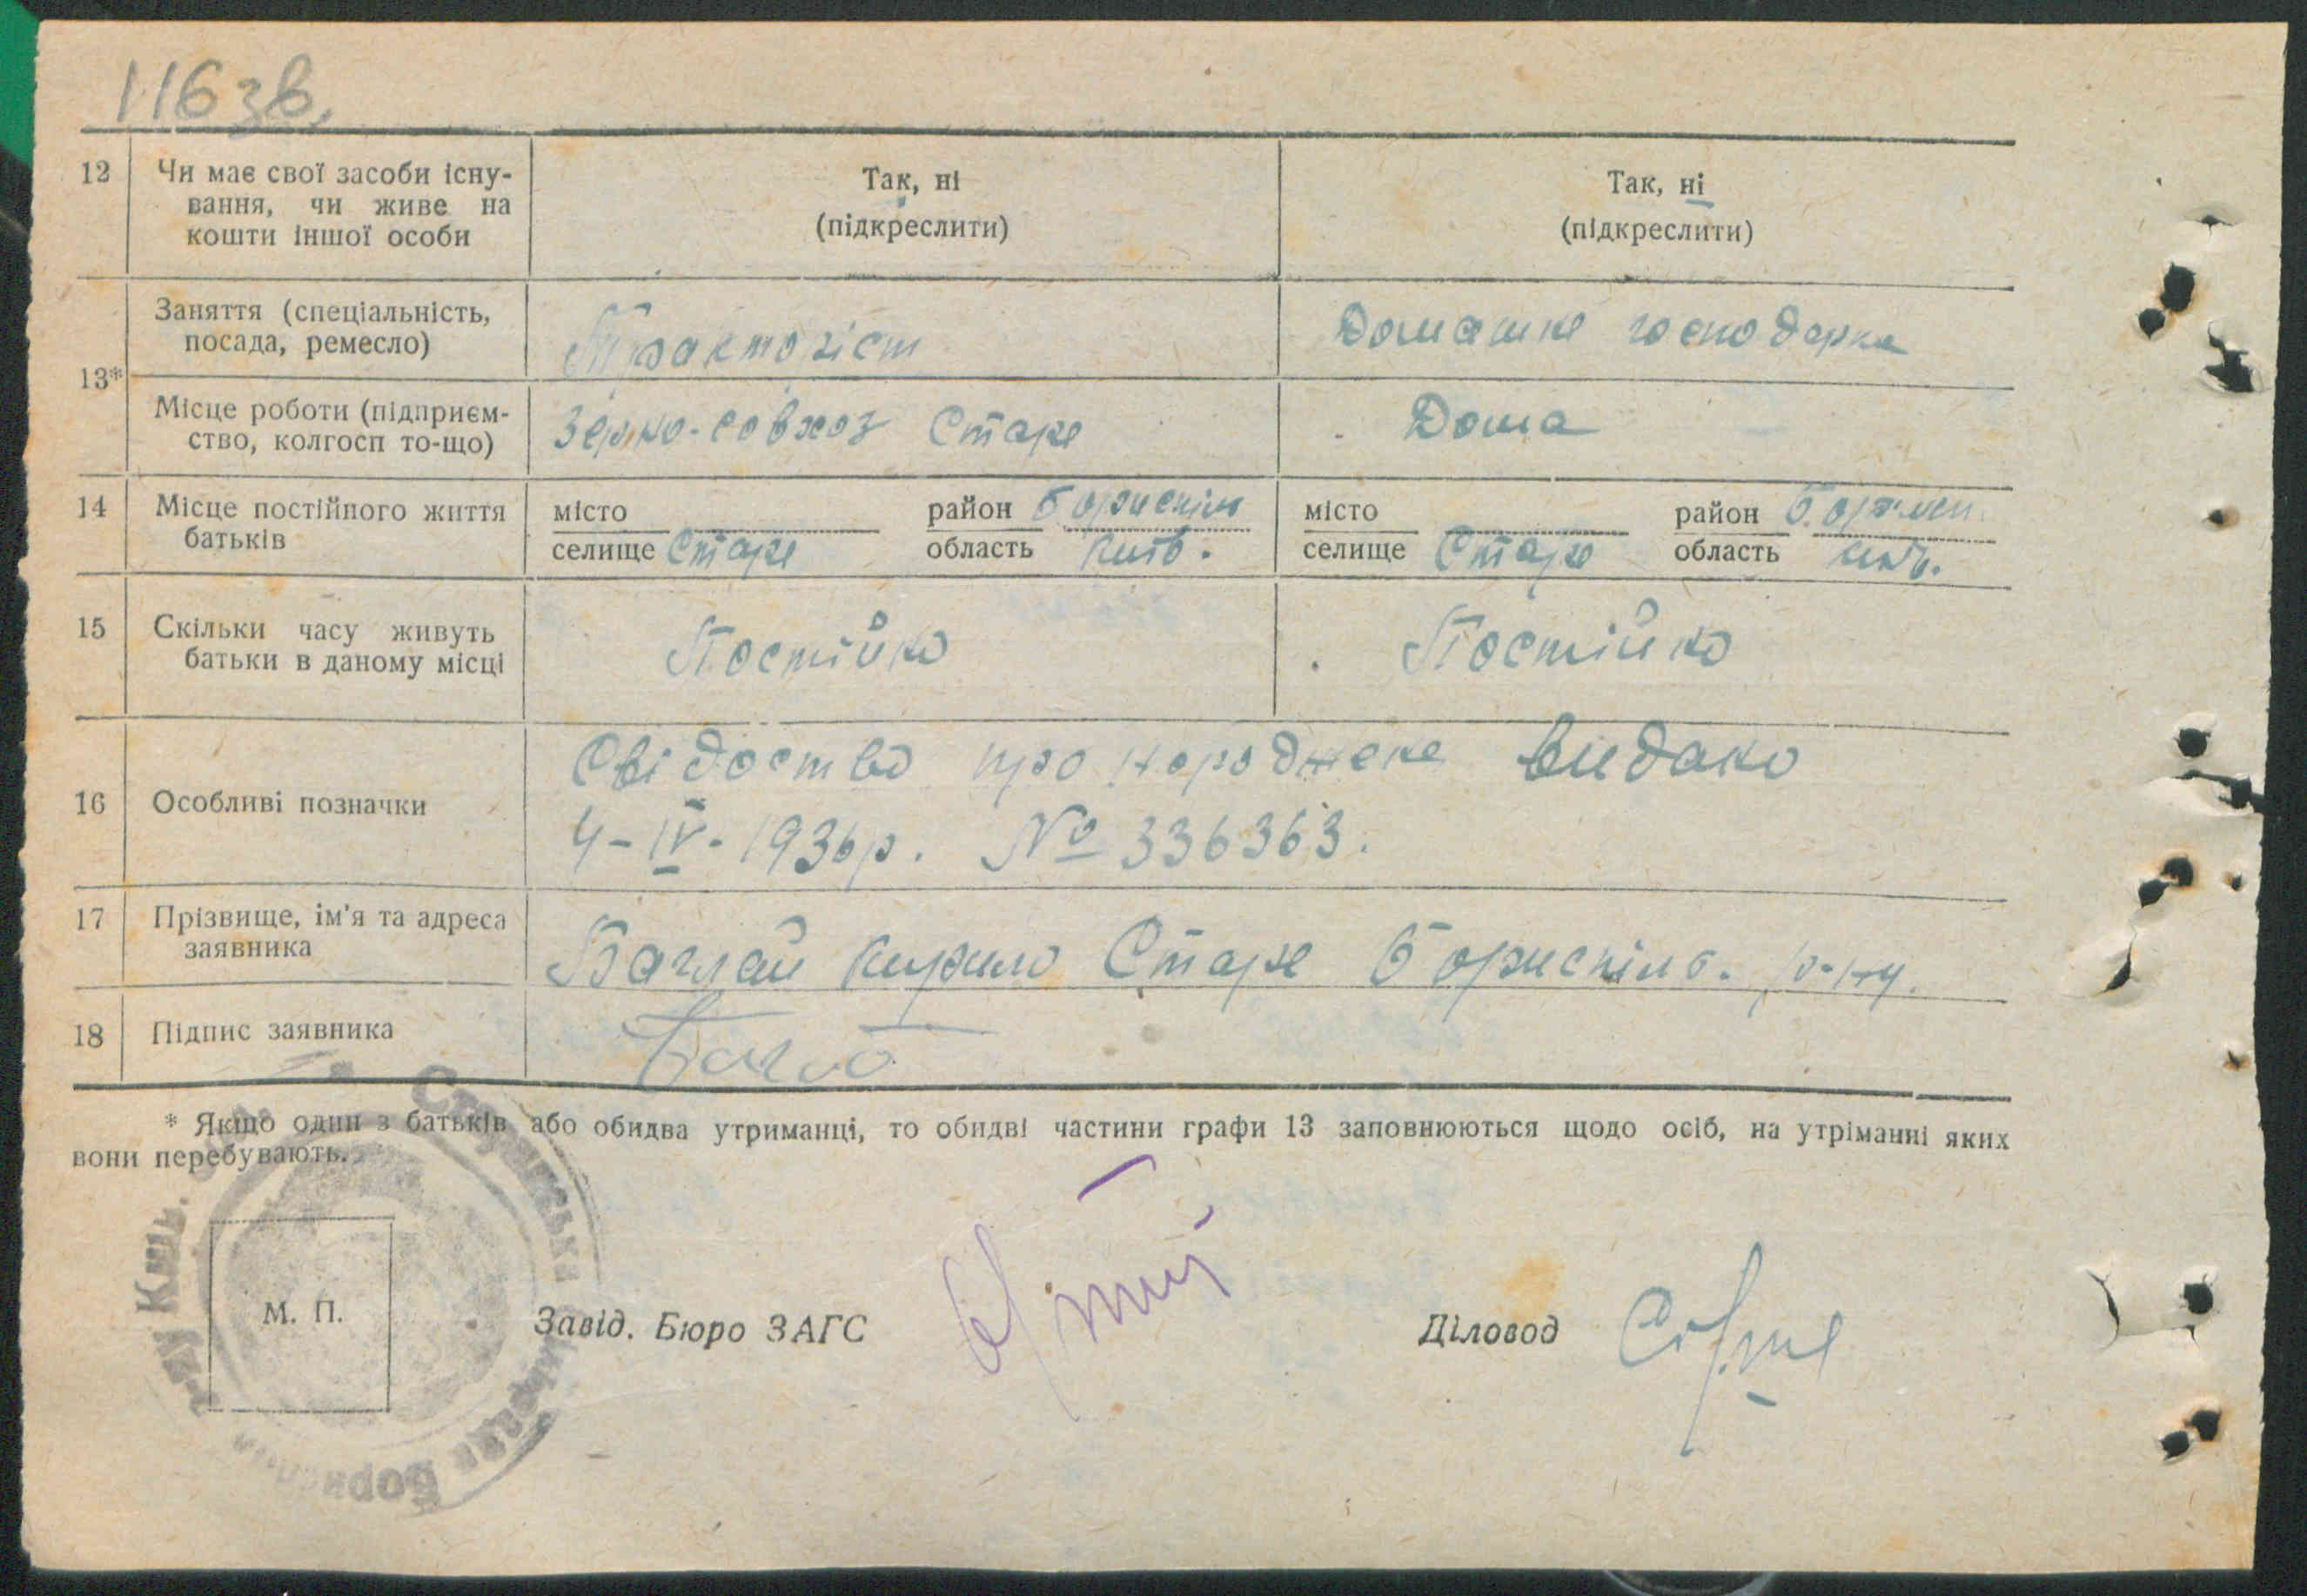 116 зв.
12 Чи має свої засоби існу-
вання, чи живе на
кошти іншої особи
Так, ні
(підкреслити)
Так, ні
(підкреслити)
13*
Заняття (спеціальність,
посада, ремесло)
Тракторіст
Домашне господарка
Місце роботи (підприєм-
ство, колгосп то-що)
Зерно-совхоз Старе
Дома
14 Місце постійного життя
батьків
місто район Бориспіль
селище Старе область Київ.
місто район Борисп.
селище Старе область київ.
15 Скільки часу живуть
батьки в даному місці
Постійно
Постійно
16 Особливі позначки
Свідоство про народжене видано
4-IV-1936 р. № 336363.
17 Прізвище, ім'я та адреса
заявника
Баглай Кирило Старе Бориспіль. р-ну.
18 Підпис заявника
* Якщо один з батьків або обидва утриманці, то обидві частини графи 13 заповнюються щодо осіб, на утріманні яких
вони перебувають.
М. П.
Завід. Бюро ЗАГС
Діловод